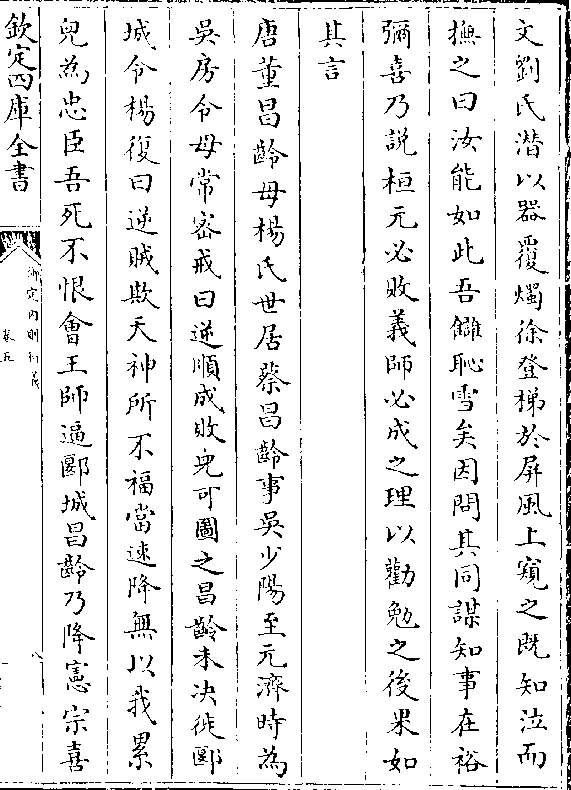 文劉氏潛以器覆燭徐登梯於屏風上窺之既知泣而
撫之曰汝能如此吾讎恥雪矣因問其同謀知事在裕
彌喜乃説桓元必敗義師必成之理以勸勉之後果如
其言
唐董昌齡母楊氏世居蔡昌齡事吳少陽至元濟時為
吳房令母常宻戒曰逆順成敗兒可圖之昌齡未決徙郾
城令楊復曰逆賊欺天神所不福當速降無以我累
兒為忠臣吾死不恨會王師逼郾城昌齡乃降憲宗喜
欽定四庫全書
御定內則衍義
卷五
八